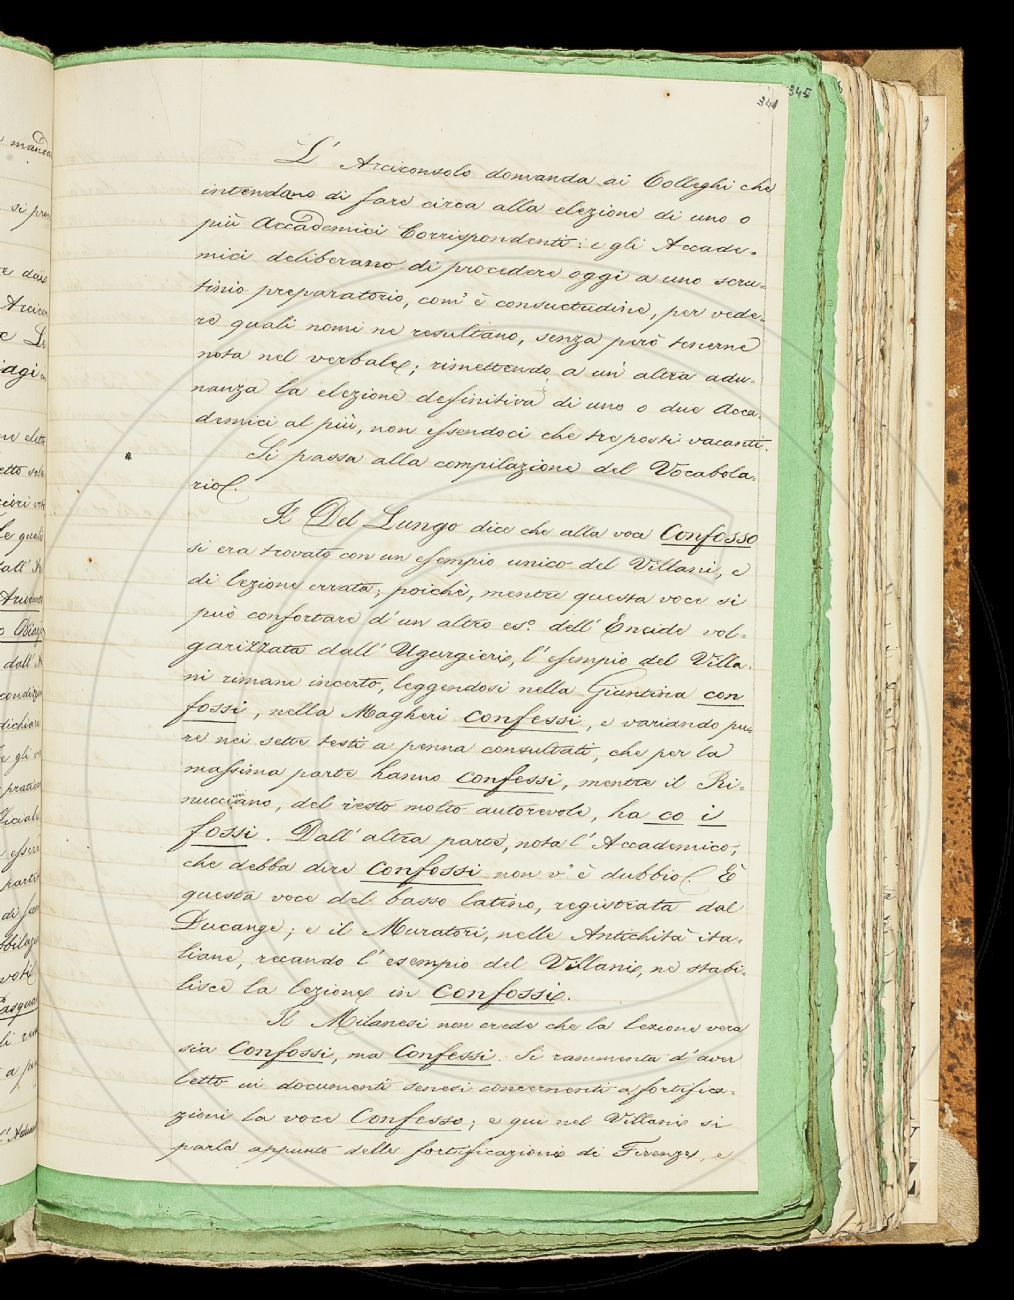 341 345
L' Arciconsolo domanda ai Colleghi che
intendano di fare circa alla elezione di uno o
più Accademici Corrispondenti: e gli Accade-
mici deliberano di procedere oggi a uno scru-
tinio preparatorio, com' è consuetudine, per vede-
re quali nomi ne resultano, senza però tenerne
nota nel verbale; rimettendo a un' altra adu-
nanza la elezione definitiva di uno o due Acca-
demici al più, non essendoci che tre posti vacanti.
Si passa alla compilazione del Vocabola-
rio.
Il Del Lungo dice che alla voce Confosso
si era trovato con un esempio unico del Villani, e
di lezione errata; poichè, mentre questa voce si
può confortare d' un altro es.o dell' Eneide vol-
garizzata dall' Ugurgieri, l' esempio del Villa-
ni rimane incerto, leggendosi nella Giuntina con
fossi, nella Magheri confessi, e variando pu-
re nei sette testi a penna consultati, che per la
massima parte hanno confessi, mentre il Ri-
nucciano, del resto molto autorevole, ha co i
fossi. Dall' altra parte, nota l' Accademico,
che debba dire confossi non v' è dubbio. È
questa voce del basso latino, registrata dal
Ducange; e il Muratori, nelle Antichità ita-
liane, recando l' esempio del Villani, ne stabi-
lisce la lezione in confossi.
Il Milanesi non crede che la lezione vera
sia Confossi, ma Confessi. Si rammenta d' aver
letto in documenti senesi concernenti a fortifica-
zioni la voce Confesso; e qui nel Villani si
parla appunto delle fortificazioni di Firenze, e